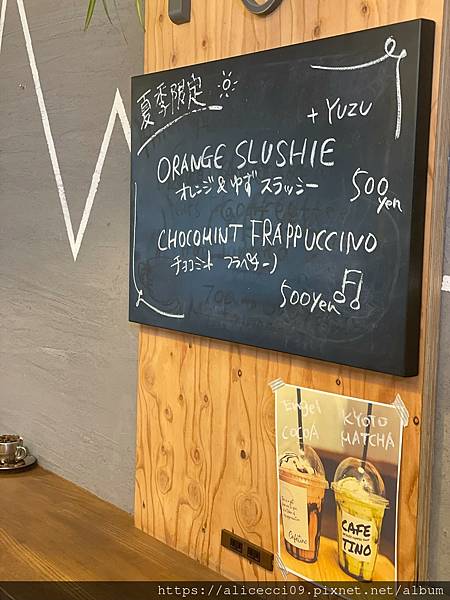 夏季限定
+ YUZU
ORANGE SLUSHIE
オレンジ&ゆず スラッシー
500 yen
CHOCOMINT FRAPPUCCINO
チョコミント フラペチーノ
500yen
Engel COCOA
KYOTO MATCHA
Cafetino
CAFE
TINO
https://alicecci09.pixnet.net/album